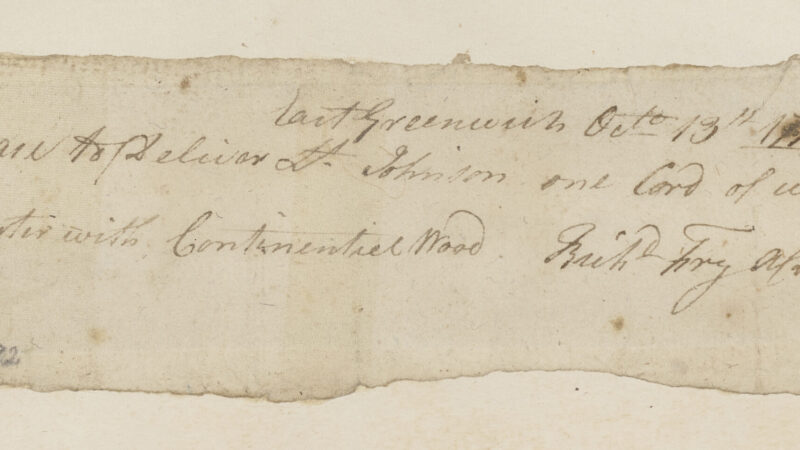 East Greenwich Octo 13th 17
ase to Deliver Lt. Johnson one Cord of w
ster with Continentiel Wood Richd Fry